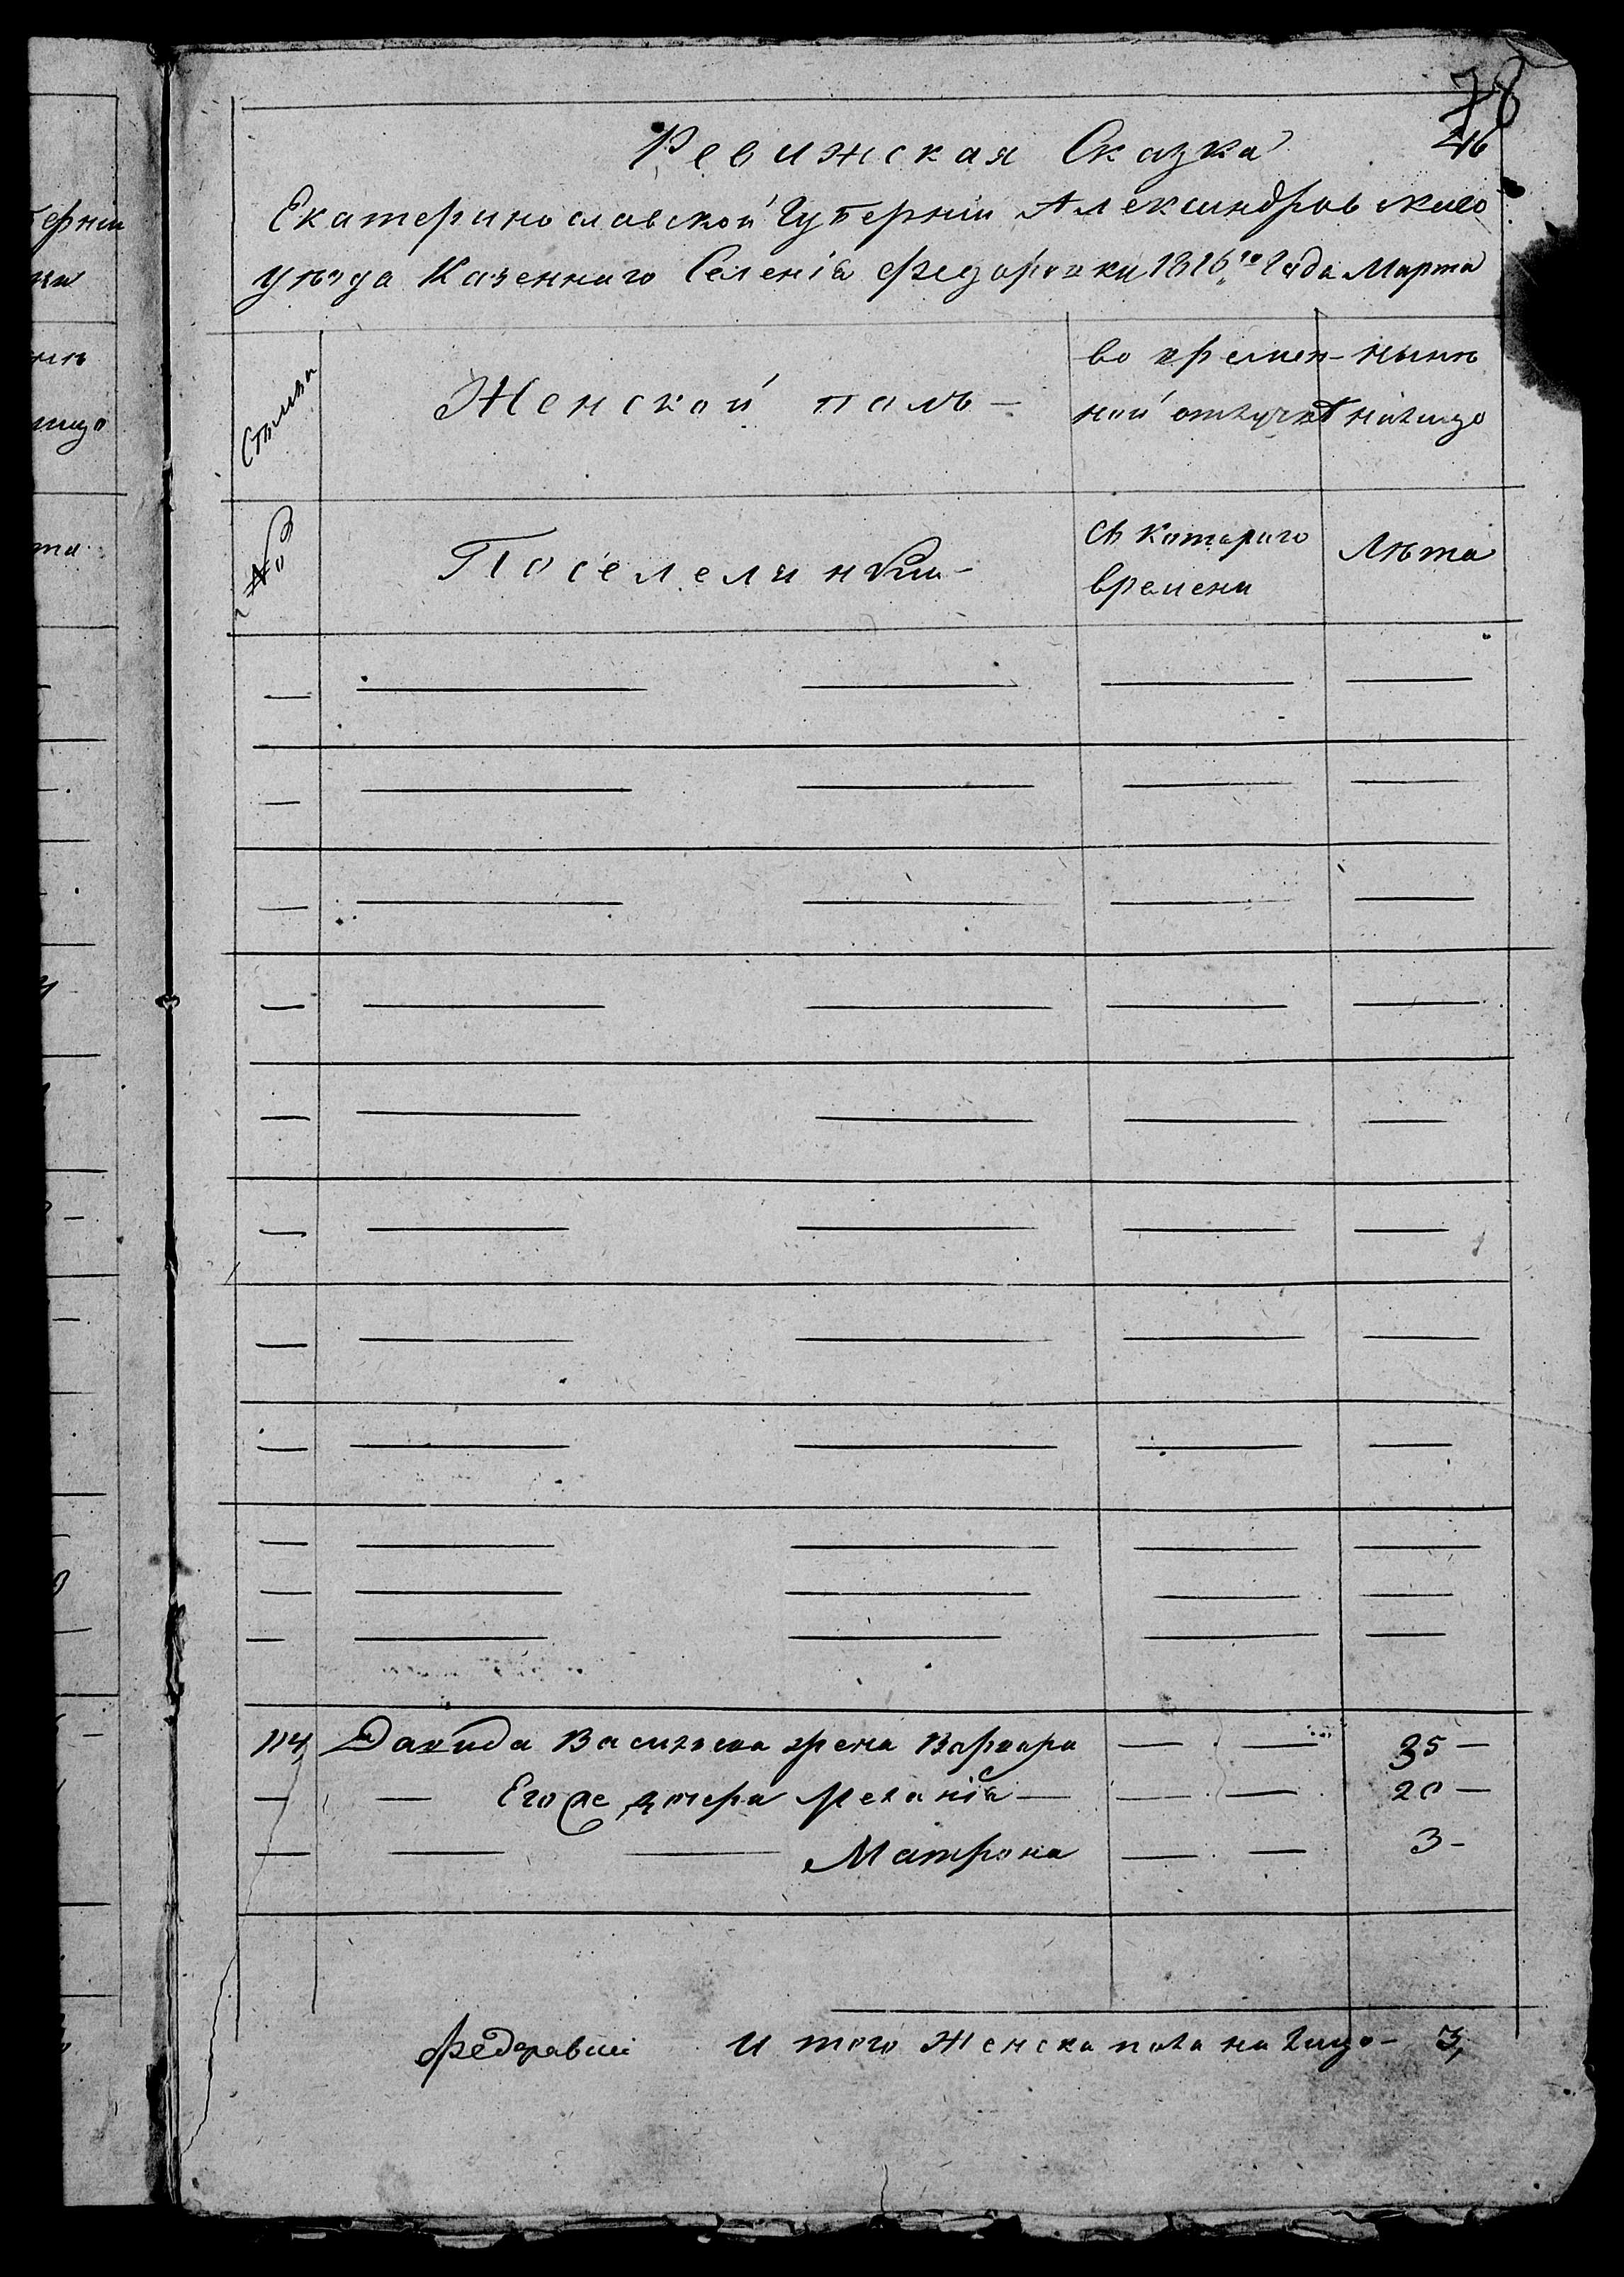 78
46
Ревижская Сказка
Екатеринославской Губерніи Александровскаго
уѣзда Казеннаго Селенія Федоровки 1816го Года Марта
Семьи
Женской полъ —
во времен-
ной отлучкѣ
нынѣ
налицо
№
Поселеля
съ котораго
времени
Лѣта
114 Давида Васильева жена Варвара — — 35 —
— — Его же дочери Меланія — — — 20 —
— — — Матрона — — 3 —
Итого Женска пола на лицо — 3,
ерніи
ми
нѣ
лицо
та